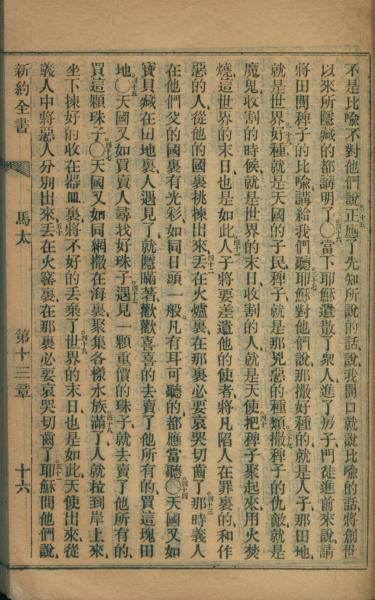 不是比喻不對他們說正應了先知所說的話說我開口就說比喻的話將創世
以來所隱藏的都講明了〇當下耶穌遣散了衆人進了房子門徒進前來說請
將田間稗子的比喻講給我們聽耶穌對他們說那撒好種的就是人子那田地
就是世界好種就是天國的子民稗子就是那兇惡的種類撒稗子的仇敵就是
魔鬼收割的時候就是世界的末日收割的人就是天使把稗子聚起來用火焚
燒這世界的末日也是如此人子將要差遣他的使者將凡陷人在罪裏的和作
惡的人從他的國裏挑揀出來丟在火爐裏在那裏必要哀哭切齒了那時義人
在他們父的國裏有光彩如同日頭一般凡有耳可聽的都應當聽〇天國又如
寶貝藏在田地裏人遇見了就隱瞞著歡歡喜喜的去賣了他所有的買這塊田
地〇天國又如買賣人尋找好珠子遇見一顆重價的珠子就去賣了他所有的
買這顆珠子〇天國又如同網撒在海裏聚集各樣水族滿了人就拉到岸上來
坐下揀好的收在器皿裏將不好的丟棄了世界的末日也是如此天使出來從
義人中將惡人分別出來丟在火窰裏在那裏必要哀哭切齒了耶穌問他們說
新約全書 馬太 第十三章 十六